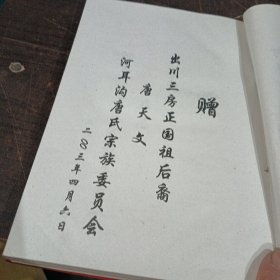 赠
出川三房正国祖后裔
唐天文
河耳沟唐氏宗族委员会
二〇〇三年四月六日